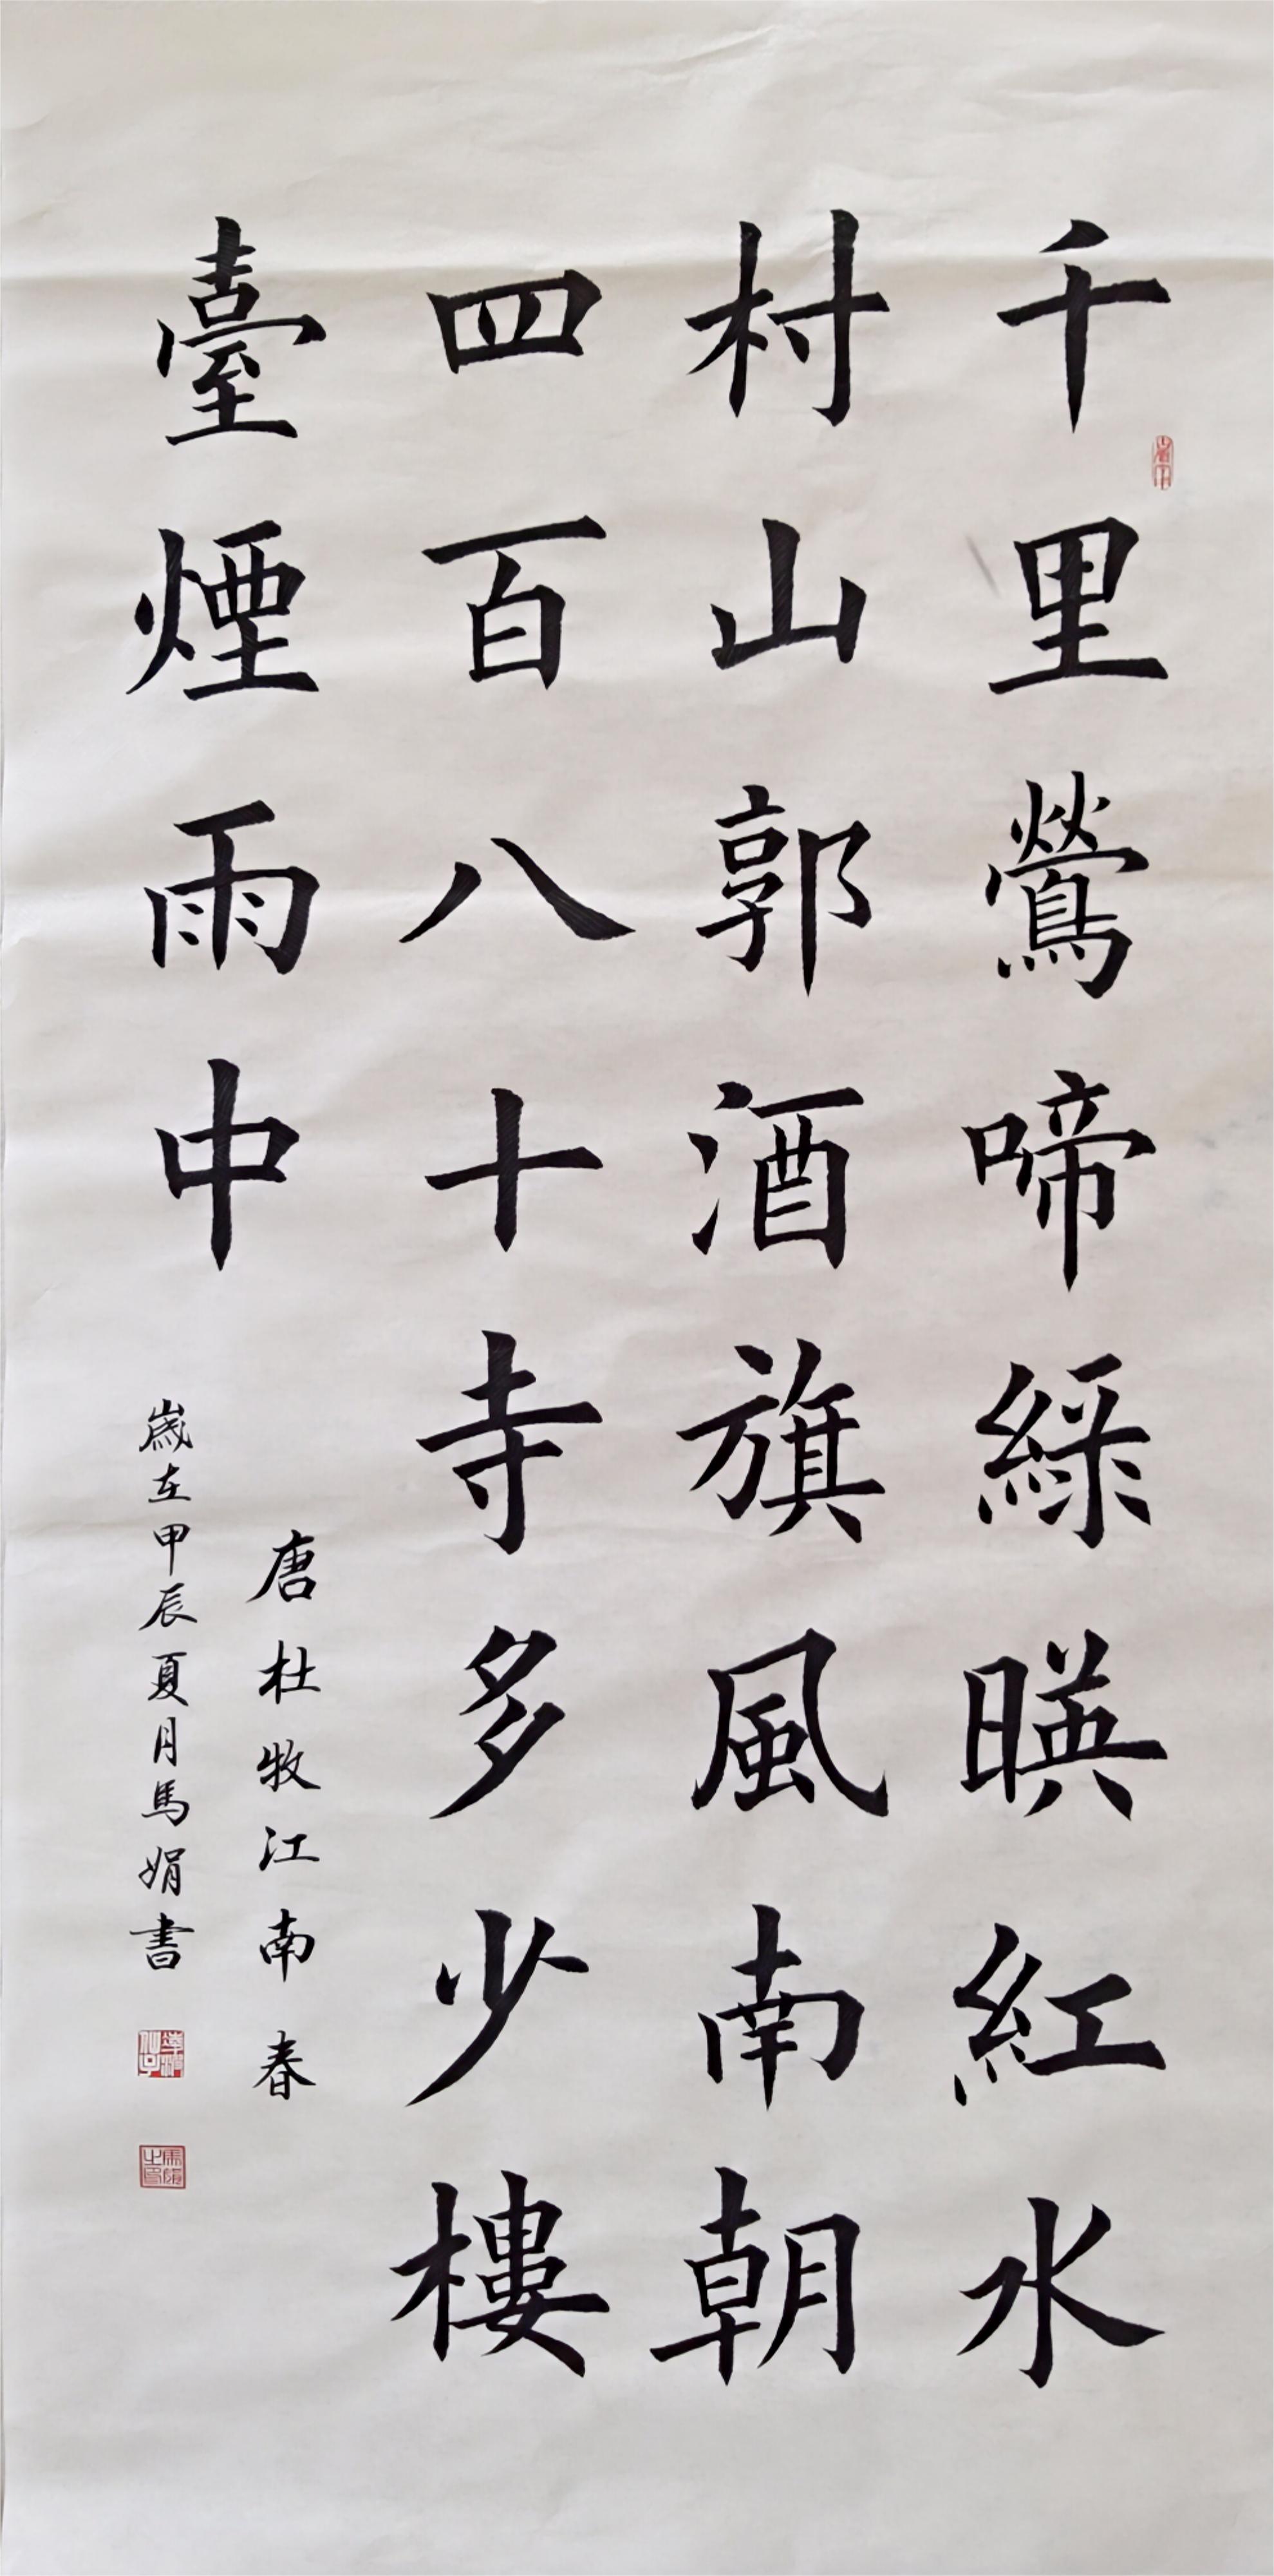 千里鶯啼綵暎紅水
村山郭酒旗風南朝
四百八十寺多少樓
臺煙雨中
唐杜牧江南春
歲在甲辰夏月馬娟書